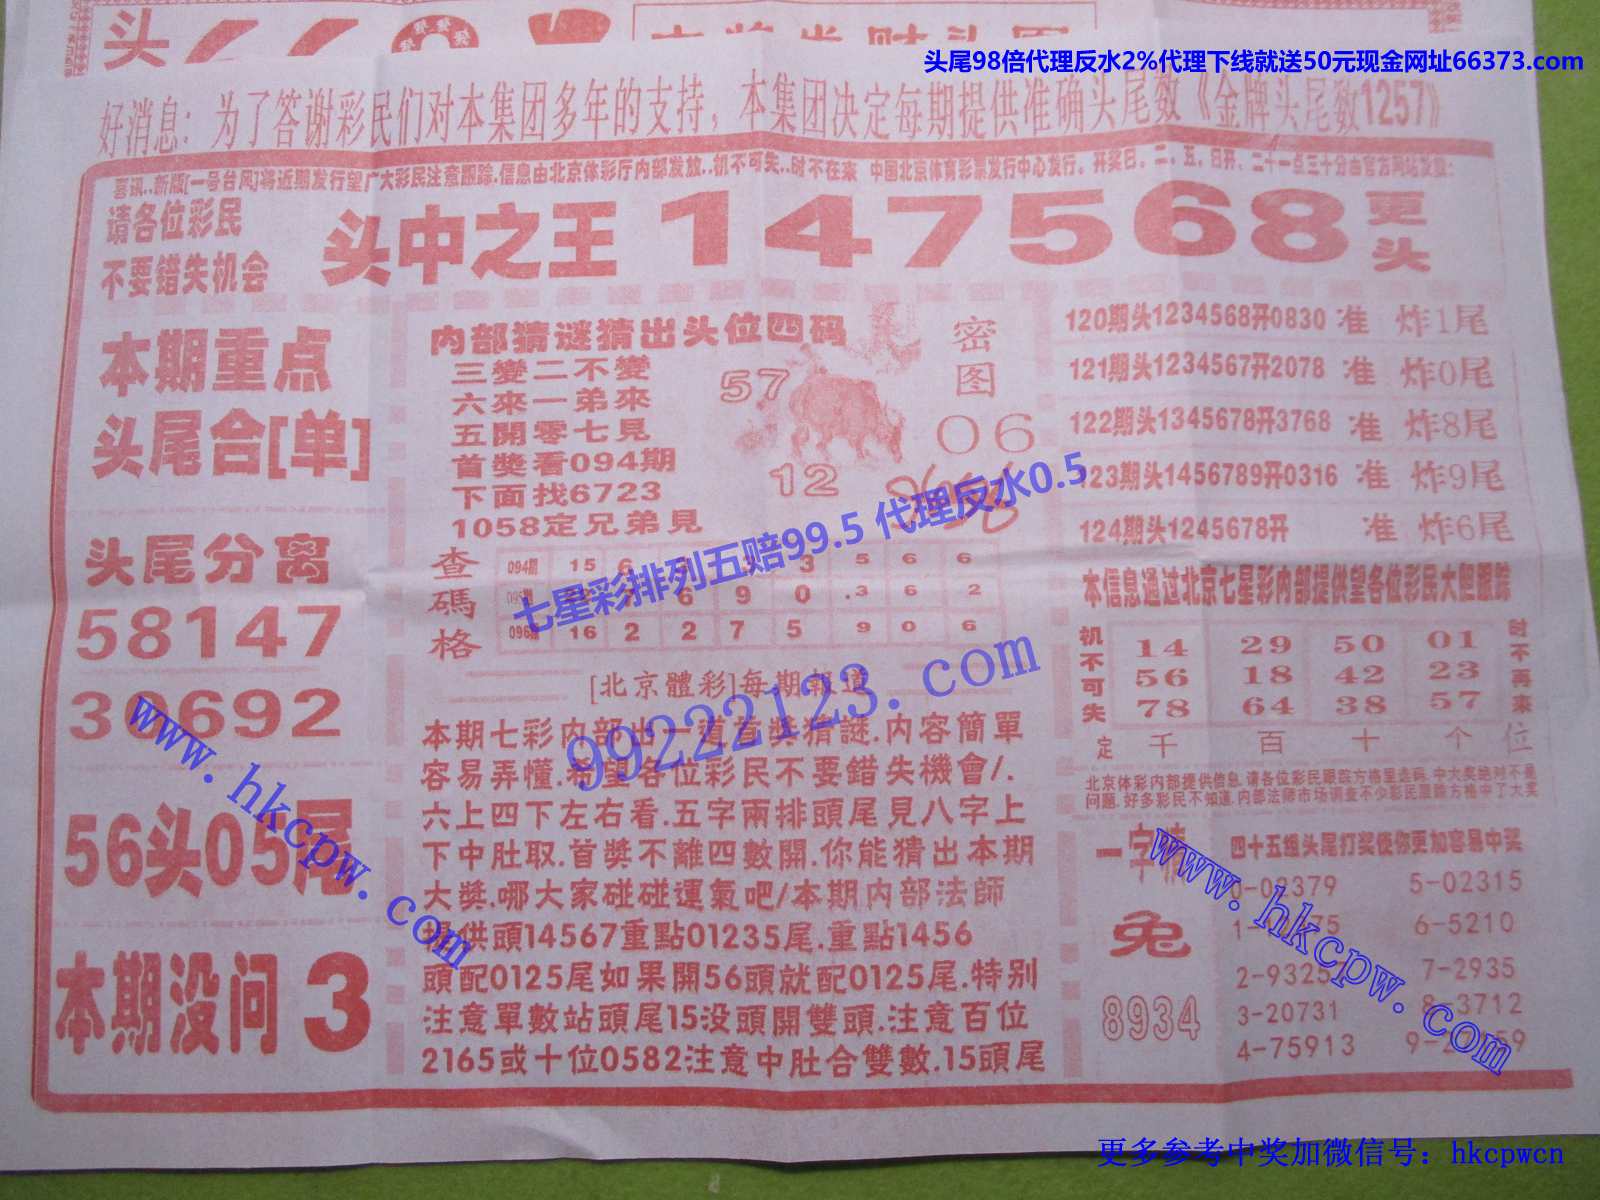 头
头尾98倍代理反水2%代理下线就送50元现金网址66373.com
好消息：为了答谢彩民们对本集团多年的支持，本集团决定每期提供准确头尾数《金牌头尾数1257》
喜讯..新版[一号台风]将近期发行望广大彩民注意跟踪.信息由北京体彩厅内部发放..机不可失..时不在来 中国北京体育彩票发行中心发行。开奖日、二、五、日开、二十一点三十分由官方网站发放：
请各位彩民
不要错失机会
头中之王 147568 更头
本期重点
头尾合[单]
头尾分离
58147
30692
56头05尾
本期没问 3
内部猜谜猜出头位四码
三變二不變
六來一弟來
五開零七見
首獎看094期
下面找6723
1058定兄弟見
57
12
密图
06
七星彩排列五赔99.5 代理反水0.5
查碼格
094期 15 6 3 3 5 6 6
6 9 0 .3 6 2
096期 16 2 2 7 5 9 0 6
[北京體彩]每期報道
本期七彩内部出一道首獎猜謎.内容簡單
容易弄懂.希望各位彩民不要錯失機會/.
六上四下左右看.五字兩排頭尾見八字上
下中肚取.首獎不離四數開.你能猜出本期
大獎.哪大家碰碰運氣吧/本期内部法師
提供頭14567重點01235尾.重點1456
頭配0125尾如果開56頭就配0125尾.特别
注意單數站頭尾15没頭開雙頭.注意百位
2165或十位0582注意中肚合雙數.15頭尾
99222123.com
120期头1234568开0830 准 炸1尾
121期头1234567开2078 准 炸0尾
122期头1345678开3768 准 炸8尾
123期头1456789开0316 准 炸9尾
124期头1245678开 准 炸6尾
本信息通过北京七星彩内部提供望各位彩民大胆跟踪
机不可失
14 29 50 01
56 18 42 23
78 64 38 57
时不再来
定 千 百 十 个 位
北京体彩内部提供信息.请各位彩民跟踪方格里选码.中大奖绝对不是
问题.好多彩民不知道.内部法师市场调查不少彩民跟踪方格中了大奖
一字
兔
8934
四十五组头尾打奖使你更加容易中奖
0-02379 5-02315
6-5210
2-9325 7-2935
3-20731 8-3712
4-75913
www.hkcpw.com
www.hkcpw.com
更多参考中奖加微信号：hkcpwcn